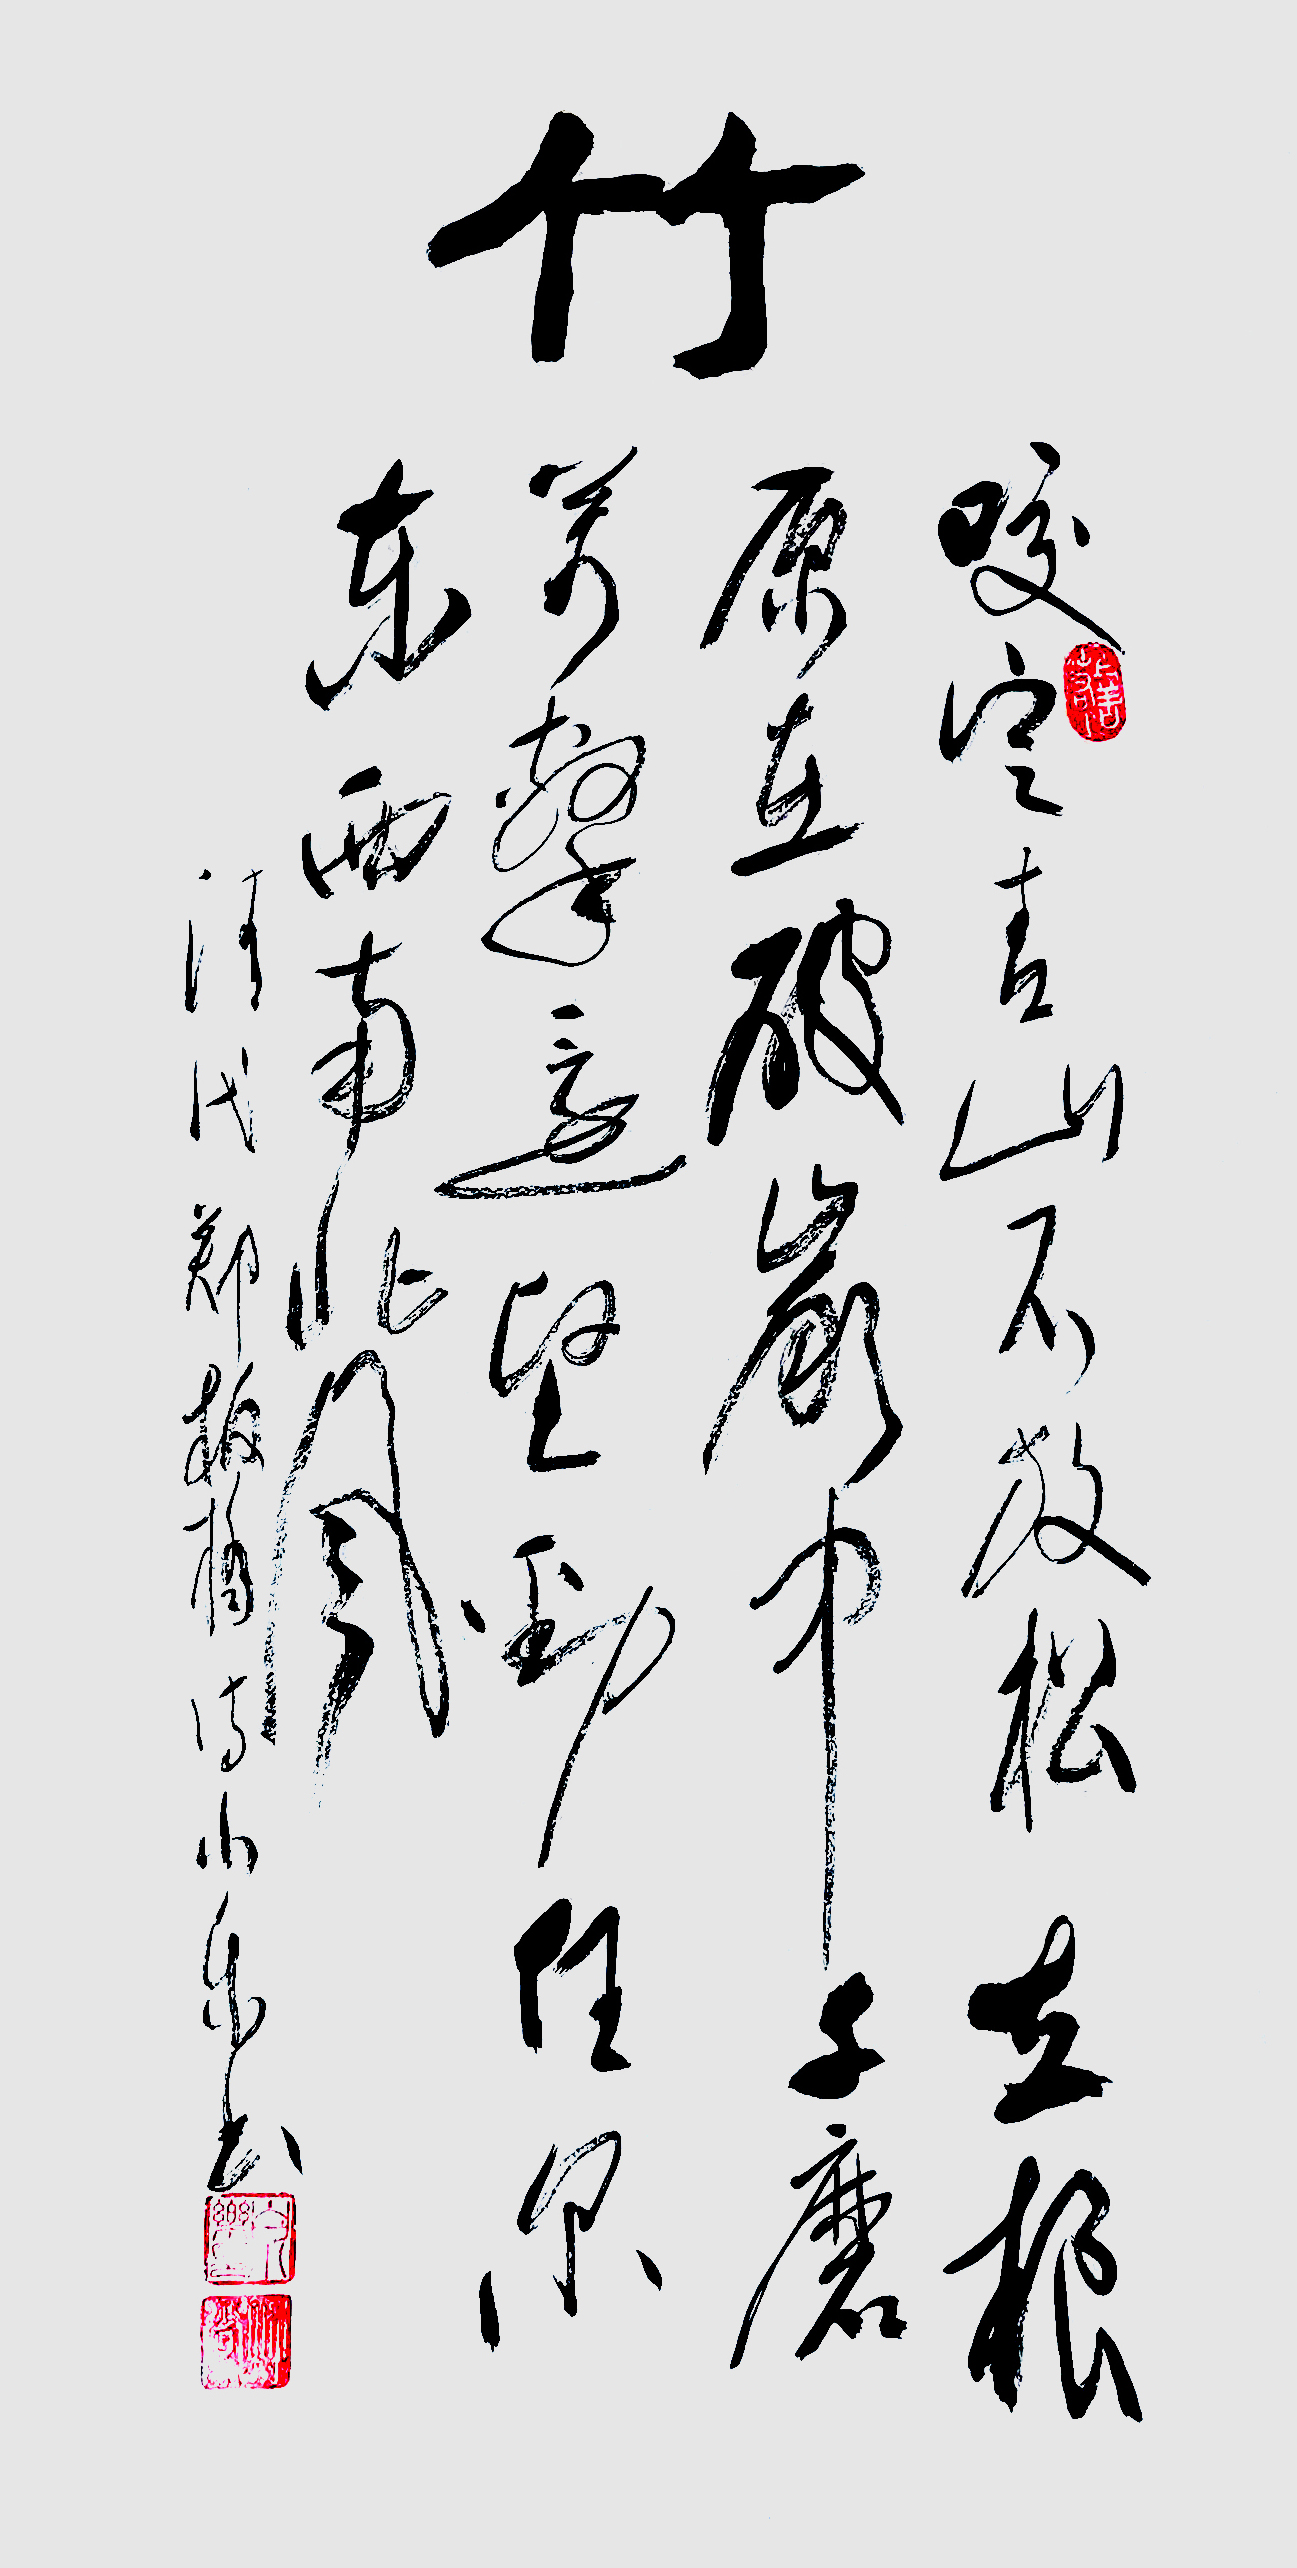 竹
咬定青山不放松立根
原在破巖中千磨
萬擊還坚劲任尔
东西南北風
清代郑板橋诗小乐书